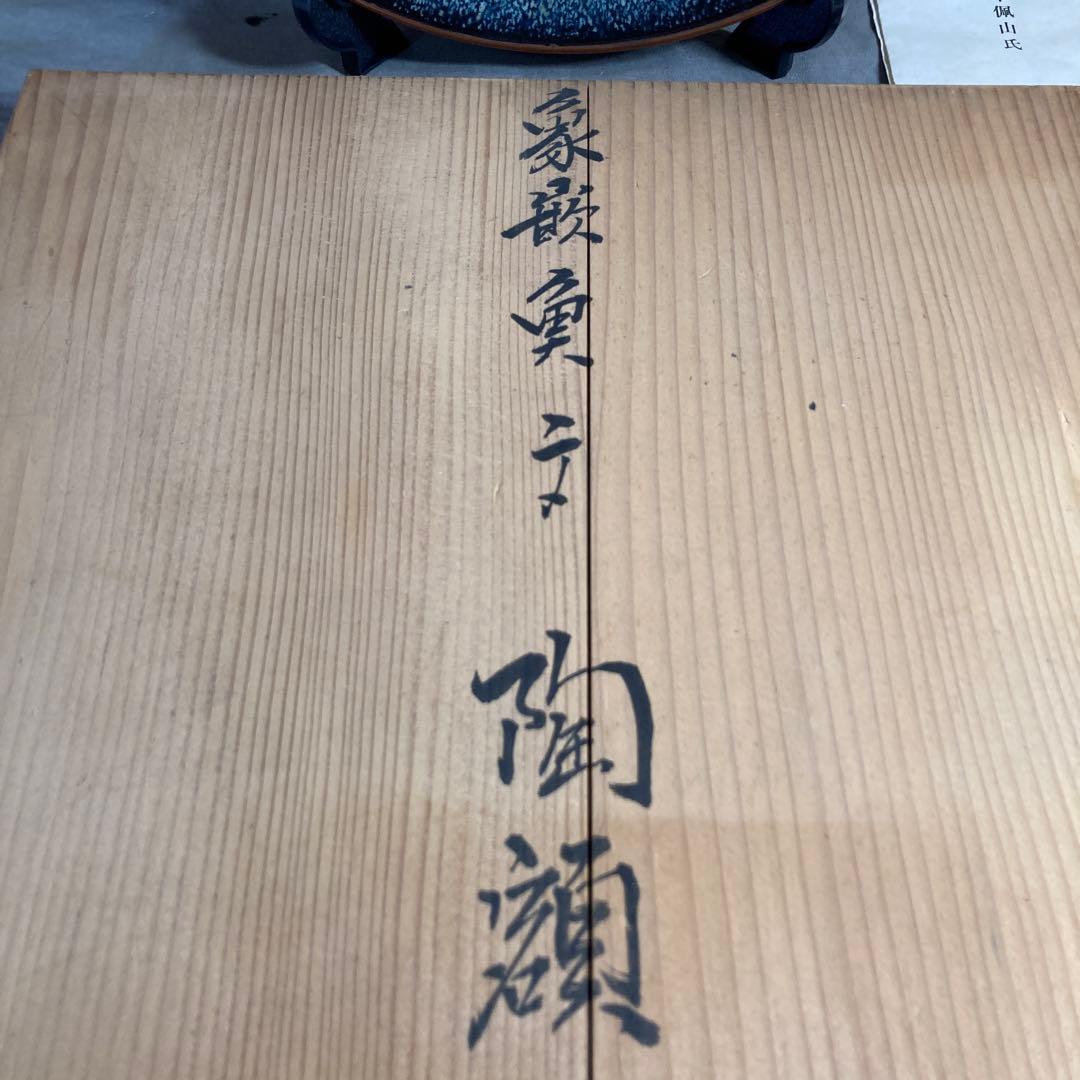 象嵌魚文
陶額
佩山氏